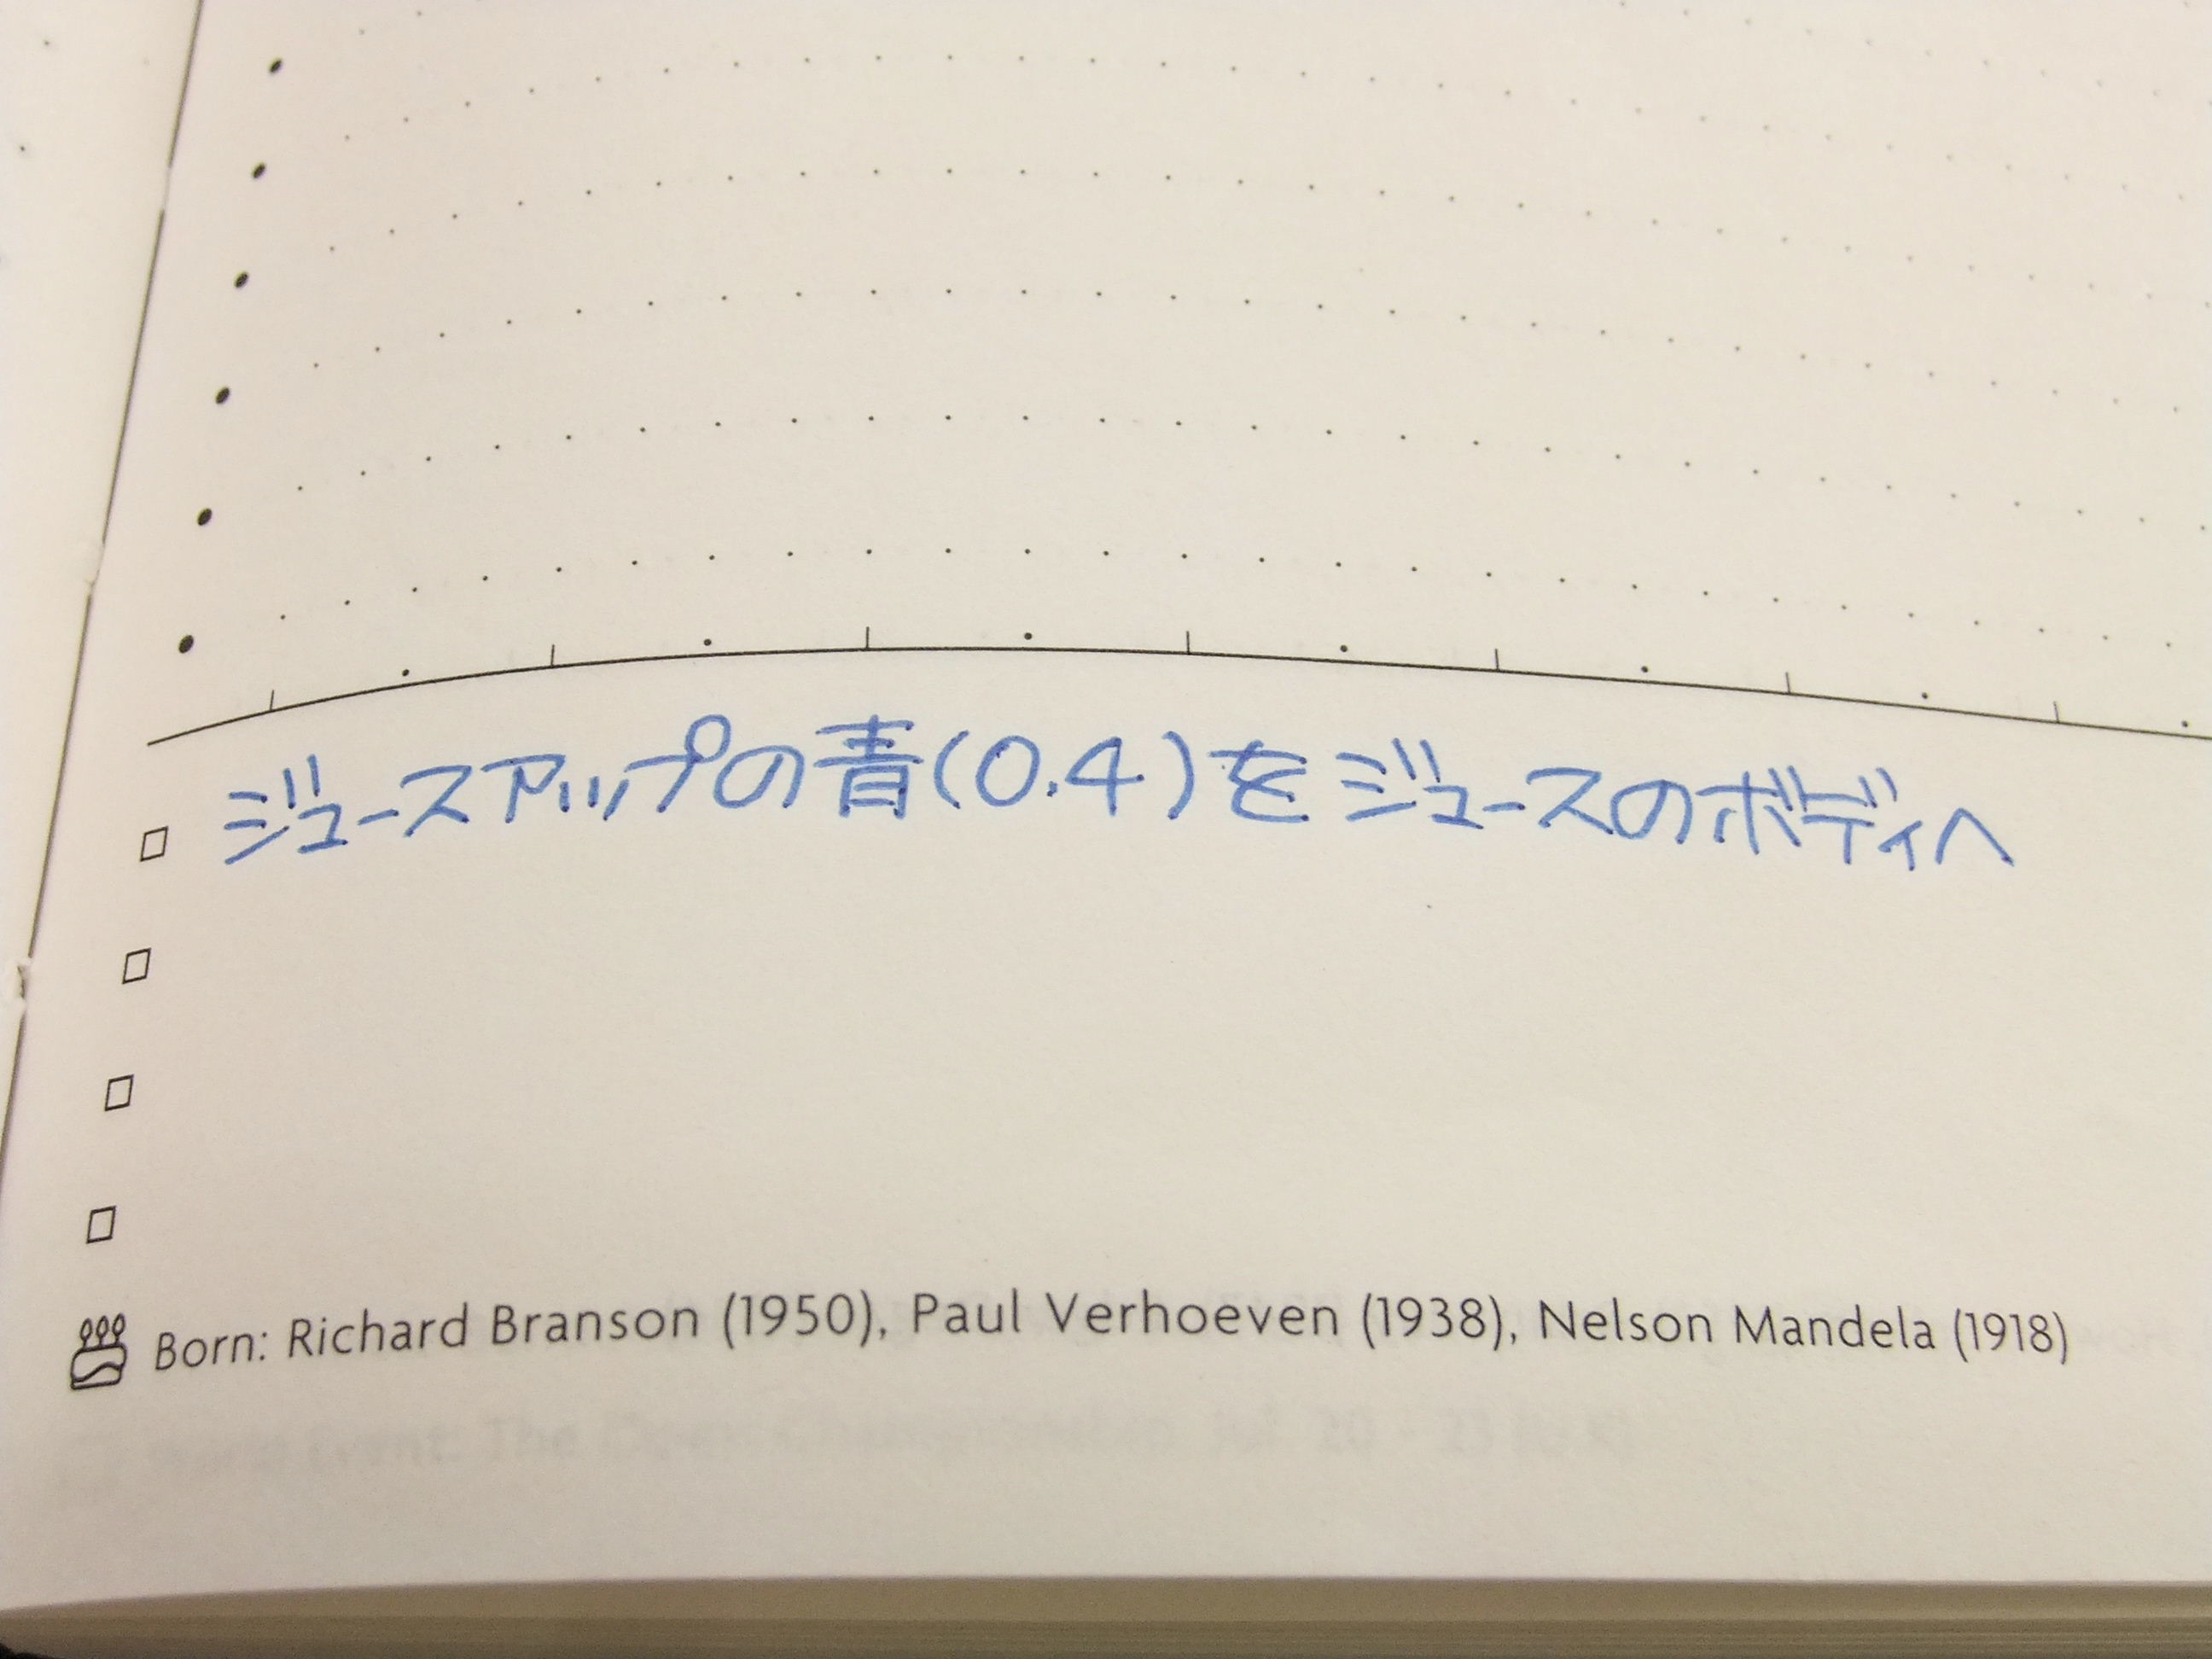 ジュースアップの青(0.4)をジュースのボディへ
Born: Richard Branson (1950), Paul Verhoeven (1938), Nelson Mandela (1918)